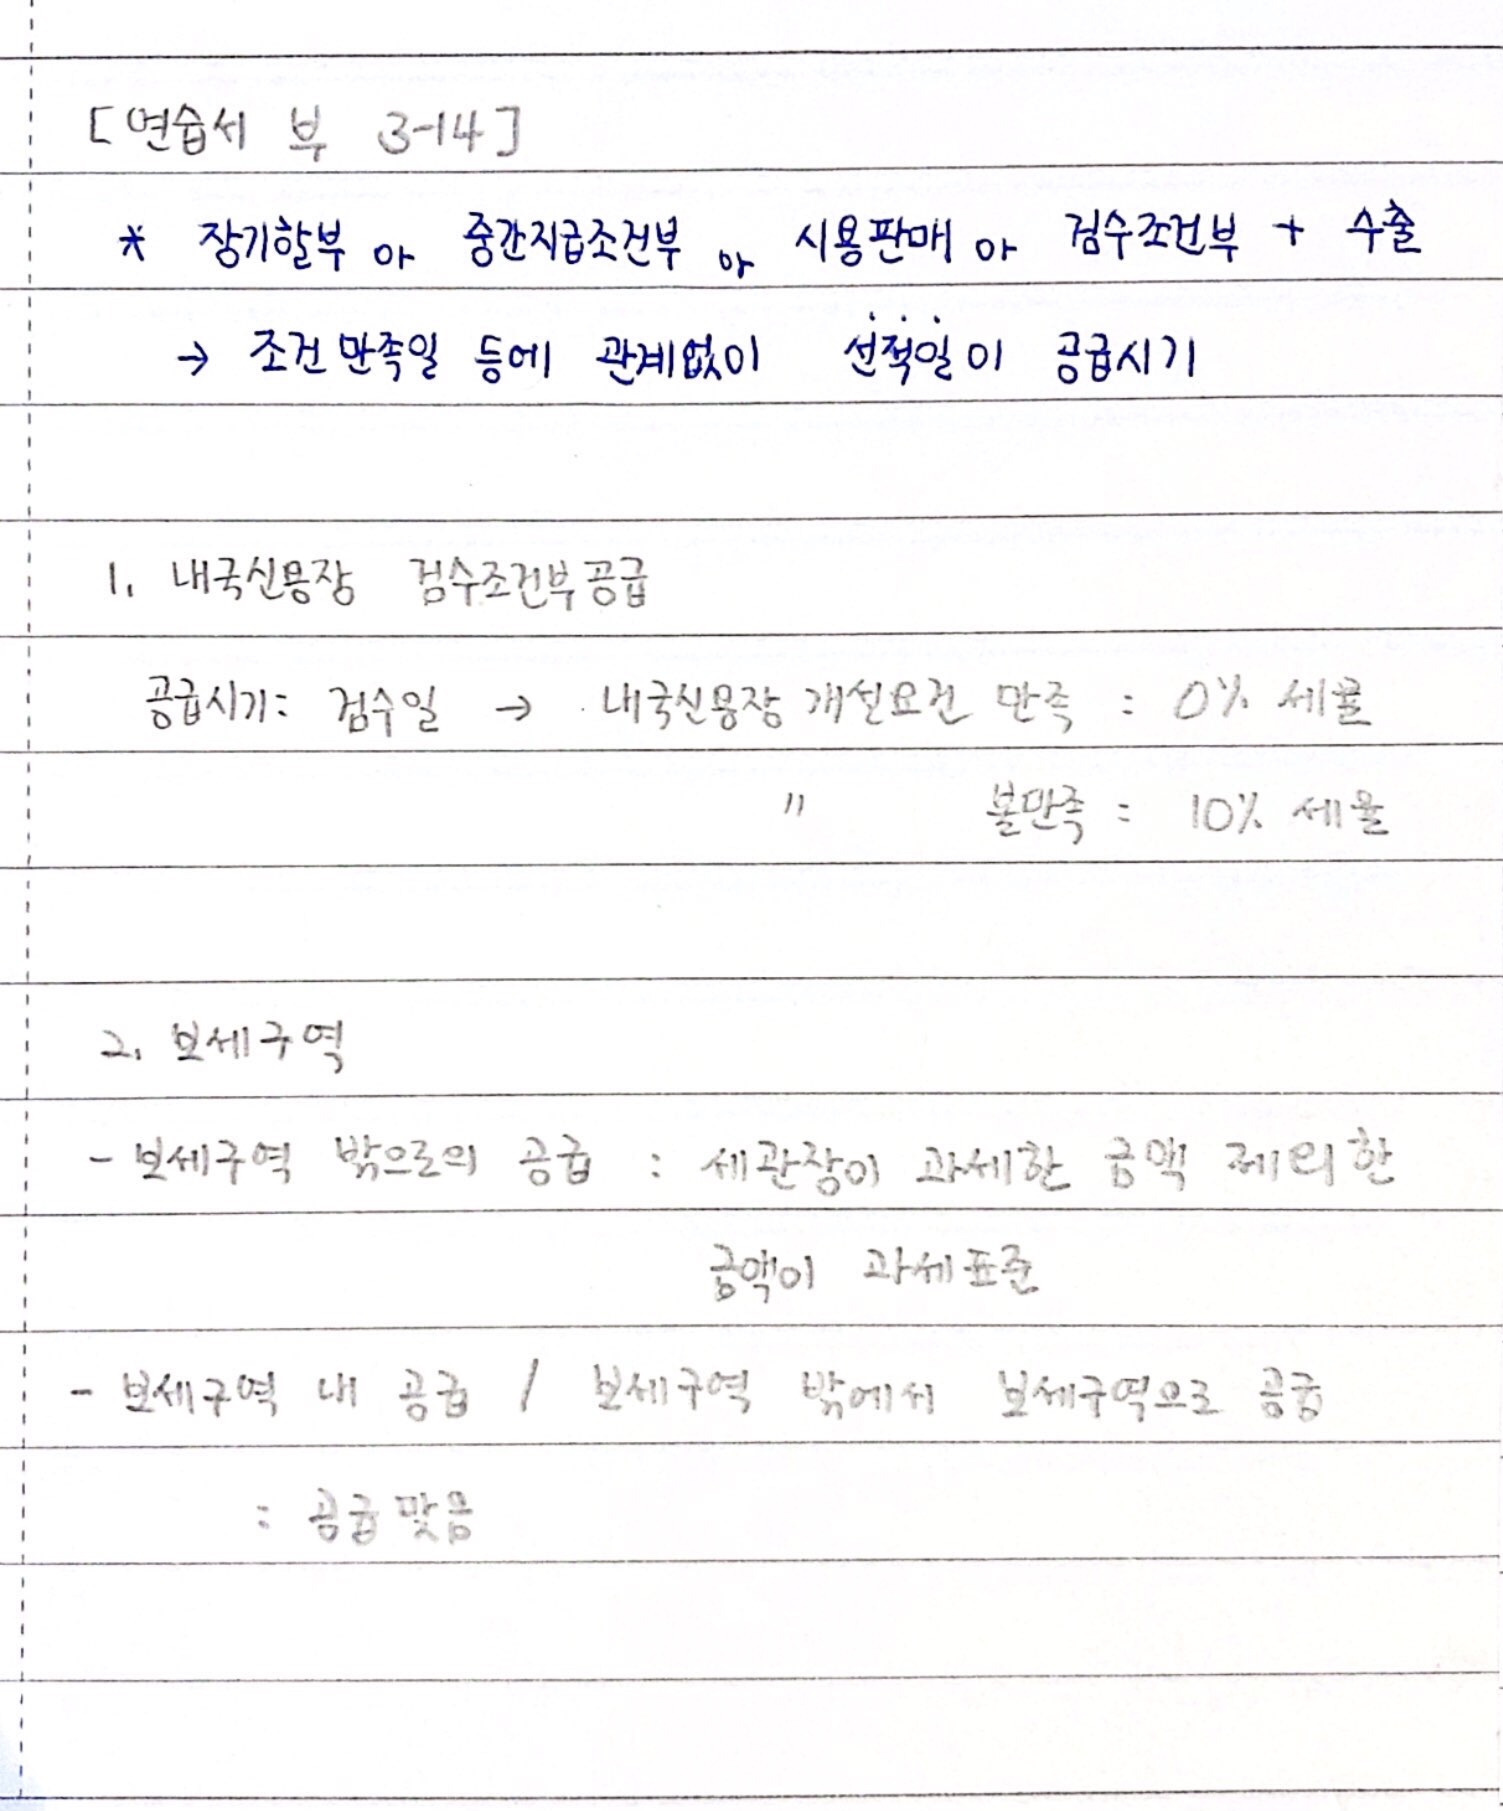 [연습서 부 3-14]
* 장기할부 or 중간지급조건부 or 시용판매 or 검수조건부 + 수출
→ 조건만족일 등에 관계없이 선적일이 공급시기
1. 내국신용장 검수조건부공급
공급시기: 검수일 → 내국신용장 개설요건 만족 : 0% 세율
〃 불만족 : 10% 세율
2. 보세구역
- 보세구역 밖으로의 공급 : 세관장이 과세한 금액 제외한
금액이 과세표준
- 보세구역 내 공급 / 보세구역 밖에서 보세구역으로 공급
: 공급맞음